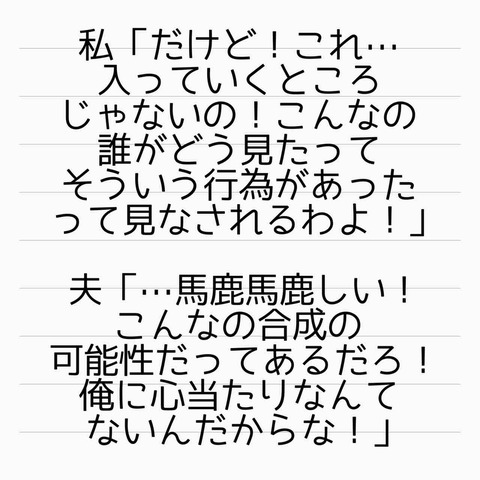 私「だけど！これ…
入っていくところ
じゃないの！こんなの
誰がどう見たって
そういう行為があった
って見なされるわよ！」
夫「…馬鹿馬鹿しい！
こんなの合成の
可能性だってあるだろ！
俺に心当たりなんて
ないんだからな！」